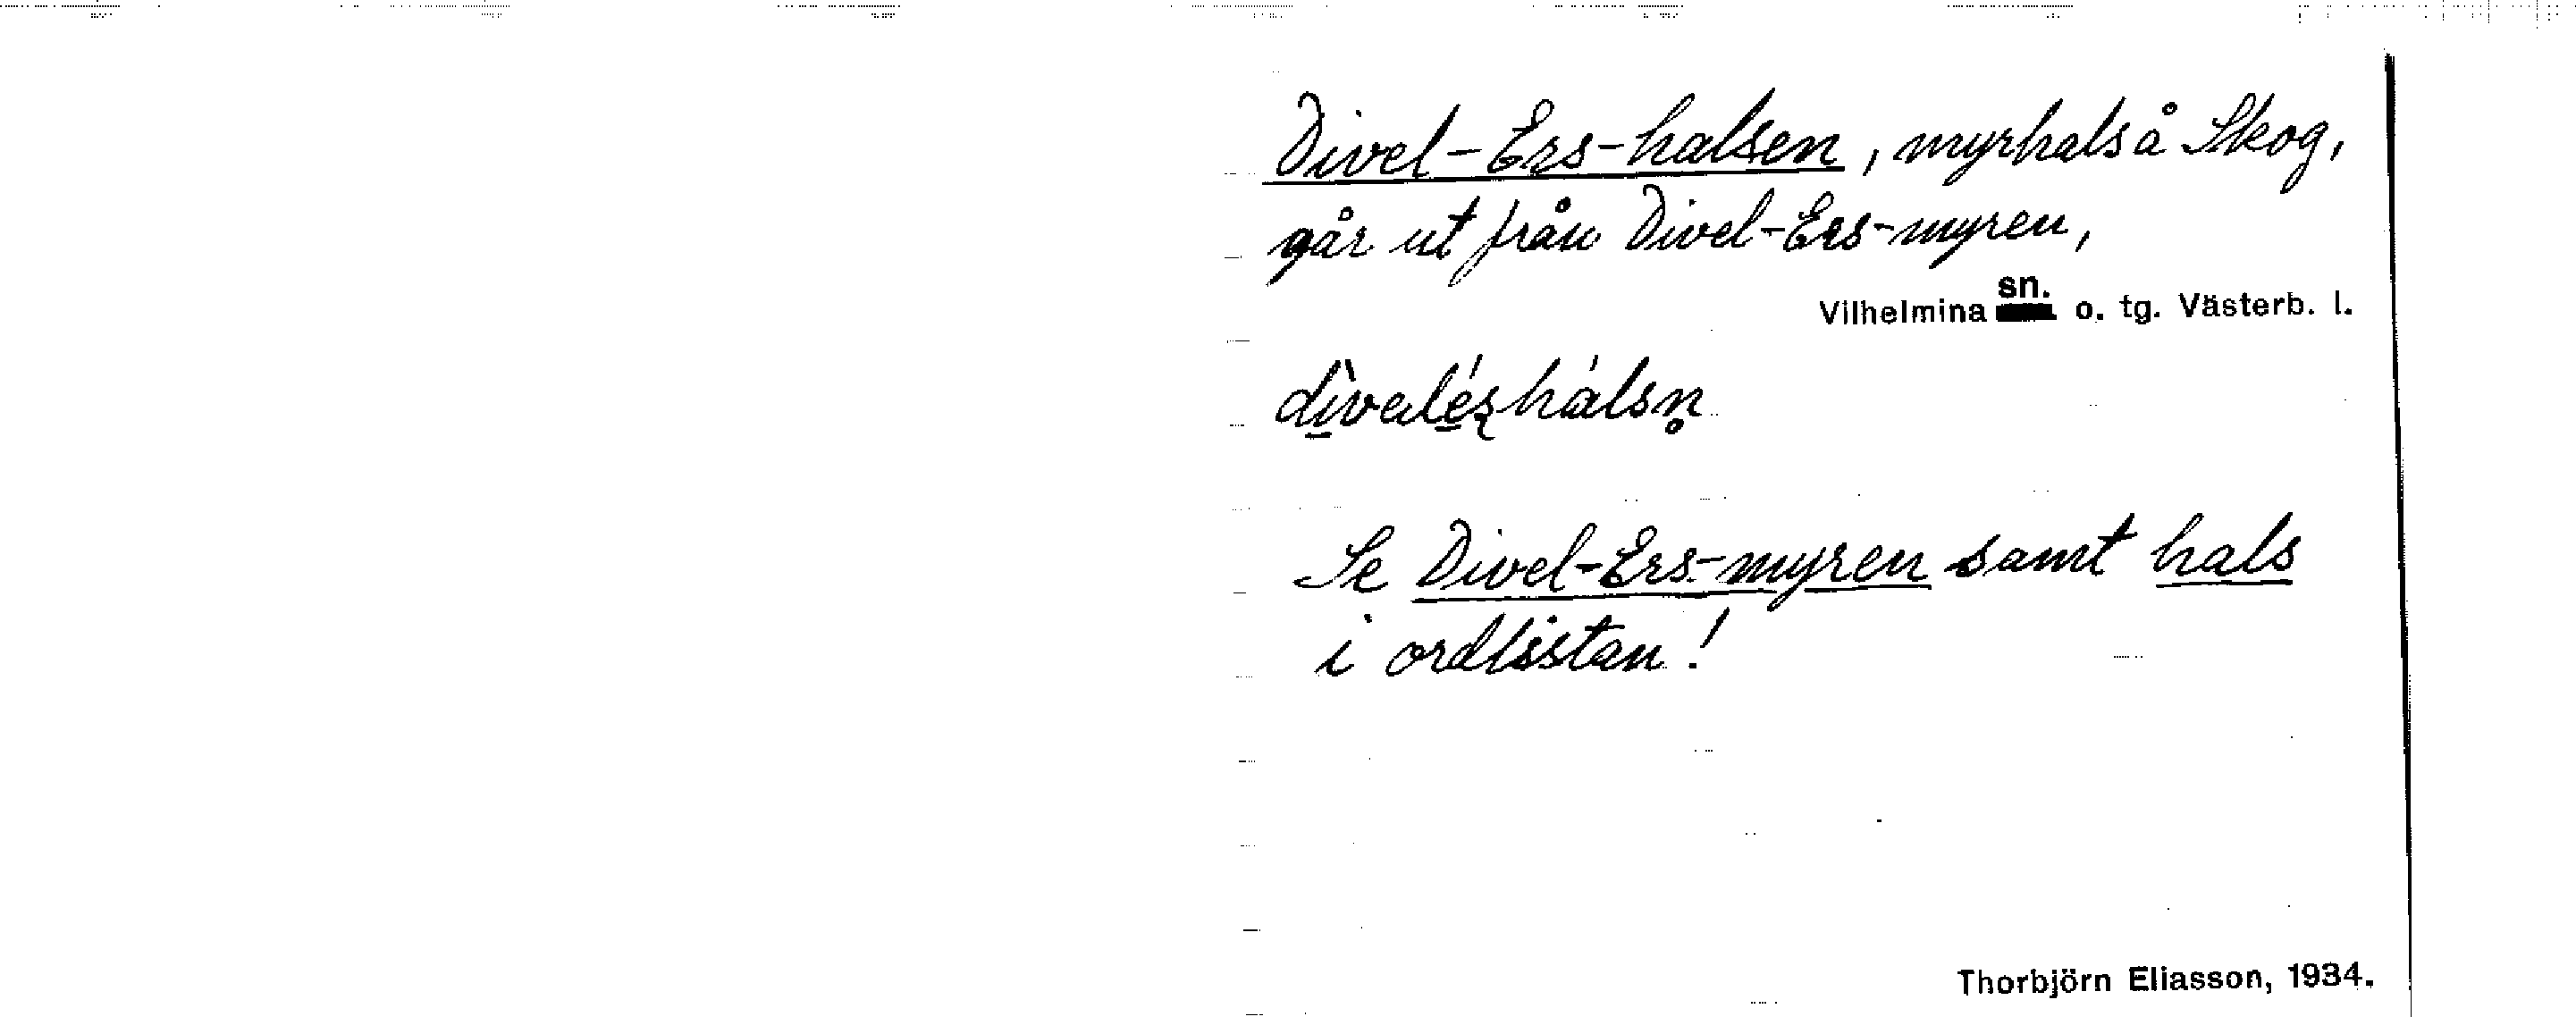 Divel-Ers-halsen, myrhals å Skog,
går ut från Divel-Ers-myren,
Vilhelmina sn. o. tg. Västerb. l.
Se Divel-Ers-myren samt hals
i ordlistan!
Thorbjörn Eliasson, 1934.